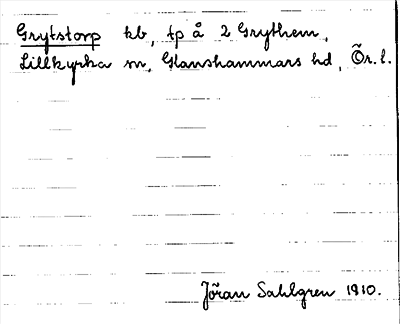 Grytstorp kb, tp å 2 Grythem,
Lillkyrka sn, Glanshammars hd, Ör. l.
Jöran Sahlgren 1910.